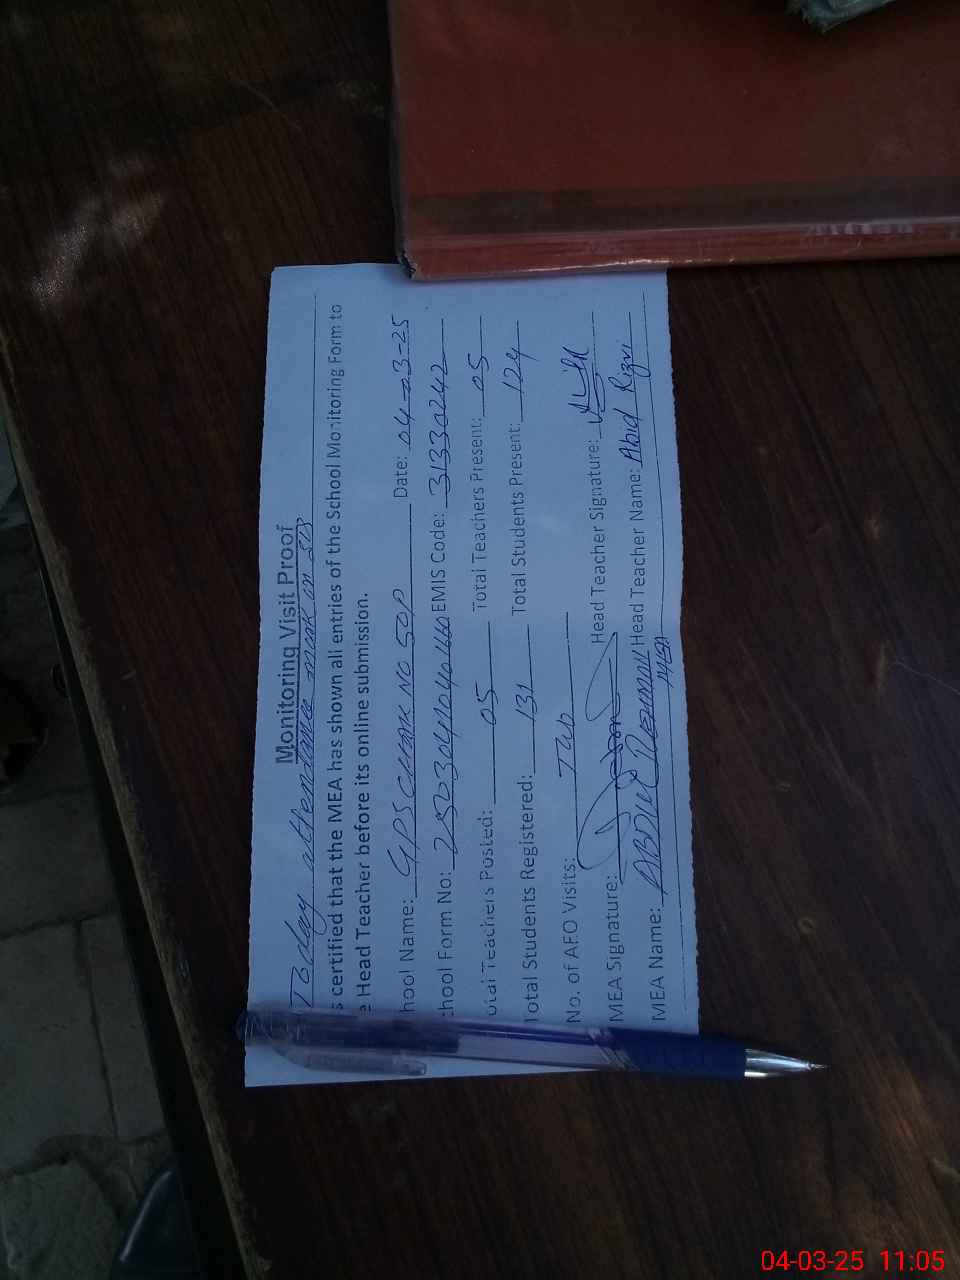 Monitoring Visit Proof
Today attendance mark on SIS
s certified that the MEA has shown all entries of the School Monitoring Form to
e Head Teacher before its online submission.
hool Name: GPS CHAK NO 50P Date: 04-03-25
chool Form No: EMIS Code: 31330242
otal Teachers Posted: 05 Total Teachers Present: 05
Total Students Registered: 131 Total Students Present: 124
No. of AEO Visits: Tab
MEA Signature: Head Teacher Signature:
MEA Name: ABDUL REHMAN Head Teacher Name: Abid Rizvi
MEA
04-03-25 11:05